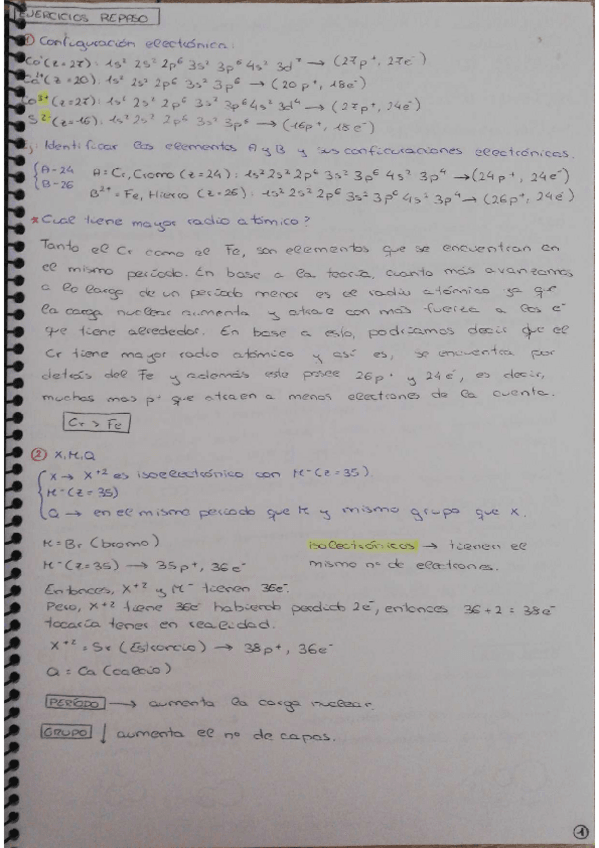 EJERCICIOS REPASO
① Configuración electrónica.
Co (z=27): 1s² 2s² 2p⁶ 3s² 3p⁶ 4s² 3d⁷ → (27p⁺, 27e⁻)
(z=20): 1s² 2s² 2p⁶ 3s² 3p⁶ → (20p⁺, 18e⁻)
Co³⁺ (z=27): 1s² 2s² 2p⁶ 3s² 3p⁶ 4s² 3d⁴ → (27p⁺, 24e⁻)
S²⁻ (z=16): 1s² 2s² 2p⁶ 3s² 3p⁶ → (16p⁺, 18e⁻)
Identificar los elementos A y B y sus configuraciones electrónicas.
A-24 A = Cr, Cromo (z=24): 1s² 2s² 2p⁶ 3s² 3p⁶ 4s² 3p⁴ → (24p⁺, 24e⁻)
B-26 B²⁺ = Fe, Hierro (z=26): 1s² 2s² 2p⁶ 3s² 3p⁶ 4s² 3p⁴ → (26p⁺, 24e⁻)
* Cual tiene mayor radio atómico?
Tanto el Cr como el Fe, son elementos que se encuentran en
el mismo período. En base a la teoría, cuanto más avanzamos
a lo largo de un período menor es el radio atómico ya que
la carga nuclear aumenta y atrae con más fuerza a los e⁻
que tiene alrededor. En base a esto, podríamos decir que el
Cr tiene mayor radio atómico y así es, se encuentra por
detrás del Fe y además este posee 26p⁺ y 24e⁻, es decir,
muchos mas p⁺ que atraen a menos electrones de la cuenta.
Cr > Fe
② X, M, Q
X → X⁺² es isoelectrónico con M⁻ (z=35).
M⁻ (z=35)
Q → en el mismo período que M y mismo grupo que X.
M = Br (bromo)
isolectrónicos → tienen el
M⁻ (z=35) → 35p⁺, 36e⁻
mismo nº de electrones.
Entonces, X⁺² y M⁻ tienen 36e⁻.
Pero, X⁺² tiene 36e⁻ habiendo perdido 2e⁻, entonces 36+2 = 38e⁻
tocaría tener en realidad.
X⁺² = Sr (Estroncio) → 38p⁺, 36e⁻
Q = Ca (calcio)
PERÍODO → aumenta la carga nuclear.
GRUPO ↓ aumenta el nº de capas.
①